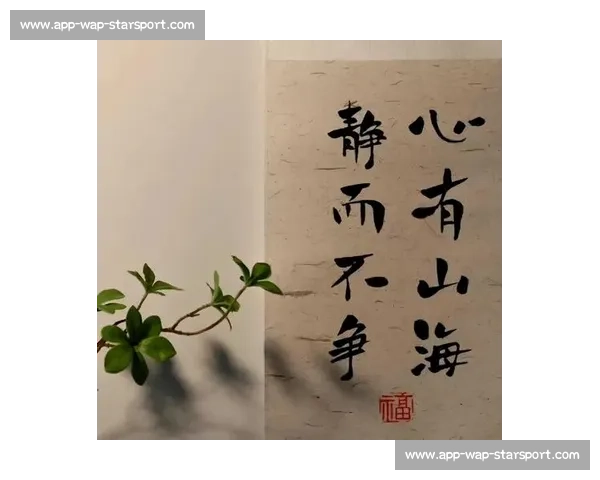 www.app-wap-starsport.com
心有山海
静而不争
福
www.app-wap-starsport.com